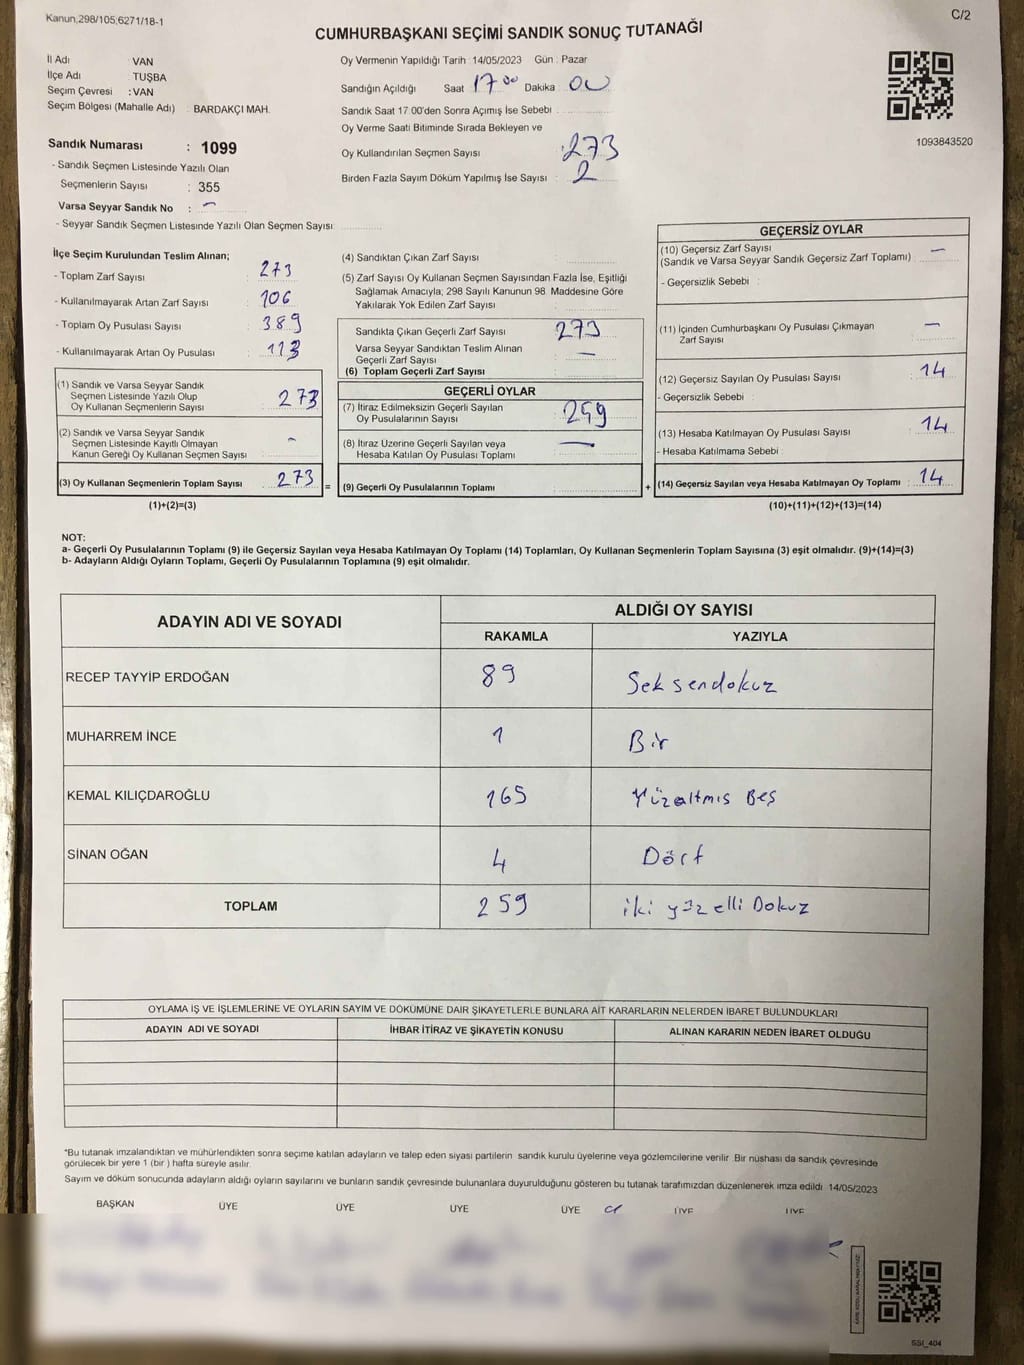 Kanun,298/105,6271/18-1
C/2
CUMHURBAŞKANI SEÇİMİ SANDIK SONUÇ TUTANAĞI
İl Adı : VAN
İlçe Adı : TUŞBA
Seçim Çevresi : VAN
Seçim Bölgesi (Mahalle Adı) : BARDAKÇI MAH.
Sandık Numarası : 1099
- Sandık Seçmen Listesinde Yazılı Olan
Seçmenlerin Sayısı : 355
Varsa Seyyar Sandık No : -
- Seyyar Sandık Seçmen Listesinde Yazılı Olan Seçmen Sayısı :
Oy Vermenin Yapıldığı Tarih : 14/05/2023 Gün : Pazar
Sandığın Açıldığı Saat 17 00 Dakika 00
Sandık Saat 17:00'den Sonra Açımış İse Sebebi :
Oy Verme Saati Bitiminde Sırada Bekleyen ve
Oy Kullandırılan Seçmen Sayısı : 273
Birden Fazla Sayım Döküm Yapılmış İse Sayısı : 2
1093843520
İlçe Seçim Kurulundan Teslim Alınan;
- Toplam Zarf Sayısı : 273
- Kullanılmayarak Artan Zarf Sayısı : 106
- Toplam Oy Pusulası Sayısı : 389
- Kullanılmayarak Artan Oy Pusulası : 113
(1) Sandık ve Varsa Seyyar Sandık
Seçmen Listesinde Yazılı Olup
Oy Kullanan Seçmenlerin Sayısı : 273
(2) Sandık ve Varsa Seyyar Sandık
Seçmen Listesinde Kayıtlı Olmayan
Kanun Gereği Oy Kullanan Seçmen Sayısı : -
(3) Oy Kullanan Seçmenlerin Toplam Sayısı : 273
(1)+(2)=(3)
(4) Sandıktan Çıkan Zarf Sayısı :
(5) Zarf Sayısı Oy Kullanan Seçmen Sayısından Fazla İse, Eşitliği
Sağlamak Amacıyla; 298 Sayılı Kanunun 98. Maddesine Göre
Yakılarak Yok Edilen Zarf Sayısı :
Sandıkta Çıkan Geçerli Zarf Sayısı : 273
Varsa Seyyar Sandıktan Teslim Alınan
Geçerli Zarf Sayısı : -
(6) Toplam Geçerli Zarf Sayısı :
GEÇERLİ OYLAR
(7) İtiraz Edilmeksizin Geçerli Sayılan
Oy Pusulalarının Sayısı : 259
(8) İtiraz Üzerine Geçerli Sayılan veya
Hesaba Katılan Oy Pusulası Toplamı : -
= (9) Geçerli Oy Pusulalarının Toplamı :
GEÇERSİZ OYLAR
(10) Geçersiz Zarf Sayısı
(Sandık ve Varsa Seyyar Sandık Geçersiz Zarf Toplamı) : -
- Geçersizlik Sebebi :
(11) İçinden Cumhurbaşkanı Oy Pusulası Çıkmayan
Zarf Sayısı : -
(12) Geçersiz Sayılan Oy Pusulası Sayısı : 14
- Geçersizlik Sebebi :
(13) Hesaba Katılmayan Oy Pusulası Sayısı : 14
- Hesaba Katılmama Sebebi :
+ (14) Geçersiz Sayılan veya Hesaba Katılmayan Oy Toplamı : 14
(10)+(11)+(12)+(13)=(14)
NOT:
a- Geçerli Oy Pusulalarının Toplamı (9) ile Geçersiz Sayılan veya Hesaba Katılmayan Oy Toplamı (14) Toplamları, Oy Kullanan Seçmenlerin Toplam Sayısına (3) eşit olmalıdır. (9)+(14)=(3)
b- Adayların Aldığı Oyların Toplamı, Geçerli Oy Pusulalarının Toplamına (9) eşit olmalıdır.
ADAYIN ADI VE SOYADI ALDIĞI OY SAYISI
RAKAMLA YAZIYLA
RECEP TAYYİP ERDOĞAN 89 Seksendokuz
MUHARREM İNCE 1 Bir
KEMAL KILIÇDAROĞLU 165 Yüzaltmıs Beş
SİNAN OĞAN 4 Dört
TOPLAM 259 iki yüzelli Dokuz
OYLAMA İŞ VE İŞLEMLERİNE VE OYLARIN SAYIM VE DÖKÜMÜNE DAİR ŞİKAYETLERLE BUNLARA AİT KARARLARIN NELERDEN İBARET BULUNDUKLARI
ADAYIN ADI VE SOYADI İHBAR İTİRAZ VE ŞİKAYETİN KONUSU ALINAN KARARIN NEDEN İBARET OLDUĞU
*Bu tutanak imzalandıktan ve mühürlendikten sonra seçime katılan adayların ve talep eden siyasi partilerin sandık kurulu üyelerine veya gözlemcilerine verilir. Bir nüshası da sandık çevresinde
görülecek bir yere 1 (bir) hafta süreyle asılır.
Sayım ve döküm sonucunda adayların aldığı oyların sayılarını ve bunların sandık çevresinde bulunanlara duyurulduğunu gösteren bu tutanak tarafımızdan düzenlenerek imza edildi. 14/05/2023
BAŞKAN ÜYE ÜYE ÜYE ÜYE ÜYE ÜYE
SSI_404